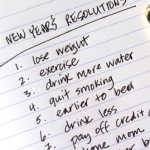 NEW YEAR'S RESOLUTIONS
1. lose weight
2. exercise
3. drink more water
4. quit smoking
5. earlier to bed
6. drink less
7. pay off credit
8. mom